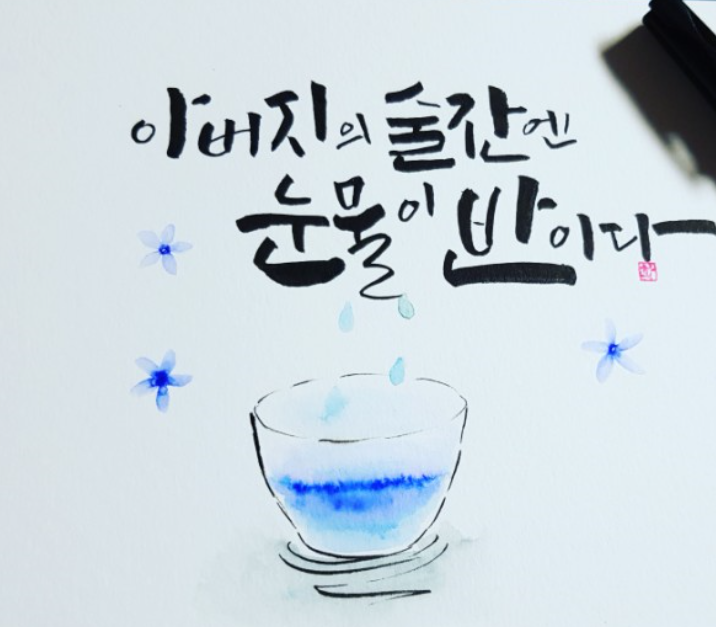 아버지의 술잔엔
눈물이 반이다